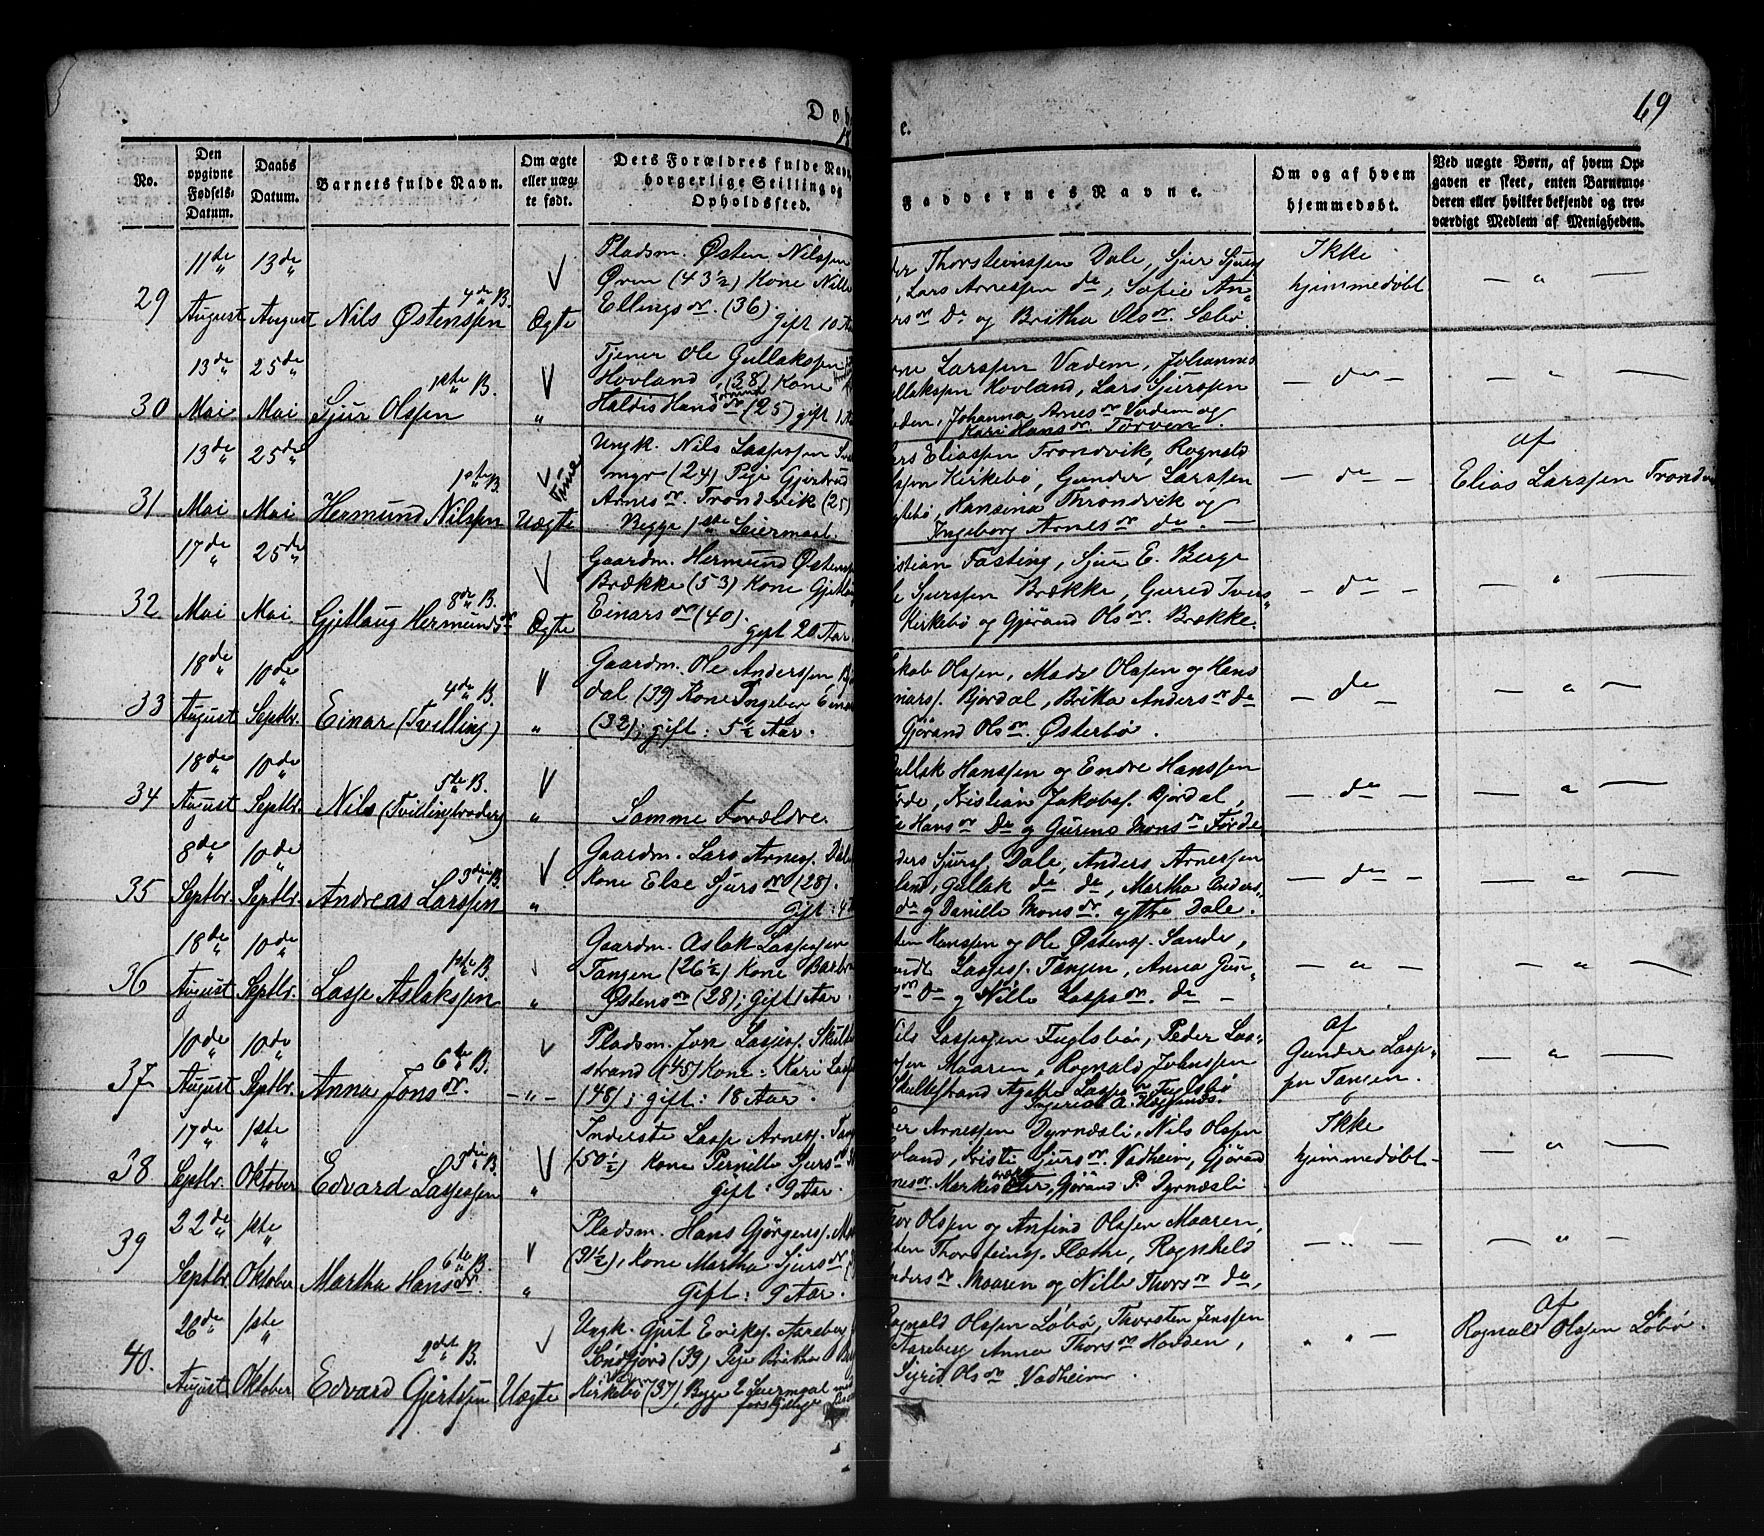 69
Døb
e.
No.
Den opgivne Fødsels-Datum.
Daabs Datum.
Barnets fulde Navn.
Om ægte eller uægte født.
Dets Forældres fulde Navn
borgerlige Stilling og
Opholdssted.
Faddernes Navne.
Om og af hvem
hjemmedøbt.
Ved uægte Børn, af hvem Op-
gaven er skeet, enten Barnemo-
deren eller hvilket bekjendt og tro-
værdigt Medlem af Menigheden.
29
11de August
13de August
4de B.
Nils Østenssen
Ægte
Pladsm. Østen Nilssen
Øren (43½) Kone Nille
Ellingsdr. (36)
gift 10 Aar
Thorsteinssen Dale, Sjur Sjurs
Lars Arnessen do, Sofie An
do og Britha Olsdr. Sæbø
Ikke
hjemmedøbt
— " —
30
13de Mai
25de Mai
1ste B.
Sjur Olssen
"
Tjener Ole Gullakssen
Hovland, (38) Kone
Haldis Hansdr (25) gift 1 Aar
Larssen Vadem, Johannes
Gullakssen Hovland, Lars Sjurssen
Johanna Arnesdr Vadem og
Kari Hansdr. Torven
— do —
— " —
31
13de Mai
25de Mai
1ste B.
Hermund Nilssen
Uægte
Ungk. Nils Lassesen
myr (24) Pige Gjertrud
Arnesdr. Trondvik (25)
Begge 1ste Leiermaal.
Eliassen Trondvik, Rognald
Kirkebø, Gunder Larssen
Hansina Throndvik og
Ingeborg Arnesdr do. —
— do —
af
Elias Larssen Trond
32
17de Mai
25de Mai
8de B.
Gjetlaug Hermundsdr
Ægte
Gaardm. Hermund Østens
Brække (53) Kone Gjetlaug
Einarsdr (40)
gift 20 Aar.
Kristian Fasting, Sjur E. Berge
Sjurssen Brække, Gurid Ivers
Kirkebø og Gjørand Olsdr. Brække.
— do —
— " —
33
18de August
10de Septbr.
4de B.
Einar (Tvilling)
"
Gaardm. Ole Anderssen Bjor
dal (39) Kone Ingebor Einar
(32); gift: 5½ Aar.
Jakob Olssen, Mads Olssen og Hans
Bjordal, Britha Andersdr do
Gjørand Olsdr. Østerbø.
— do —
— " —
34
18de August
10de Septbr.
5te B.
Nils (Tvillingbroder)
"
Samme Forældre.
Gullak Hanssen og Endre Hanssen
Førde, Kristian Jakobss. Bjordal,
Hansdr do og Gurine Monsdr Førde
— do —
— " —
35
8de Septbr.
10de Septbr.
3die B.
Andreas Larssen
"
Gaardm. Lars Arness. Dale
Kone Else Sjursdr (28).
Gift: 4
Anders Sjurss. Dale, Anders Arnessen
Gullak do do, Martha Anders
do og Danille Monsdr. ytre Dale.
— do —
— " —
36
18de August
10de Septbr.
1ste B.
Lasse Aslakssen
"
Gaardm. Aslak Lassesen
Tangen (26½) Kone Barbra
Østensdr (28); Gift 1 Aar.
Hanssen og Ole Østens. Sande,
Lasses. Tangen, Anna
do og Nille Lassesdr. do —
— " —
— " —
37
10de August
10de Septbr.
6te B.
Anna Jonsdr.
— " —
Pladsm. Jon Lasses. Skulte
strand (45) Kone: Kari Lasse
(48); gift: 18 Aar.
Nils Lassesen Fuglsbø, Peder Las-
sen Maaren, Rognald Johnssen
Skultestrand Agathe Lassesdr Fuglsbø
af
Gunder Lasse-
sen Tangen.
— " —
38
17de Septbr.
1ste Oktober
3die B.
Edvard Lassesen
"
Inderste Lasse Arness. Tang
(50½) Kone Pernille Sjursdr
Gift: 9 Aar.
Arnessen Dyrnesli, Nils Olssen
Hovland, Kristi Sjursdr. Vadheim, Gjørand
Gjørand P. Dyrnesli
Ikke
hjemmedøbt —
— " —
39
22de Septbr.
1ste Oktober
6te B.
Martha Hansdr.
"
Pladsm. Hans Gjørgens.
(31½), Kone Martha Sjursdr
Gift: 9 Aar.
Thor Olssen og Anfind Olssen Maaren,
Thorsteins. Flæthe, Rognheld
Andersdr Maaren og Nille Thorsdr do,
— " —
— " —
40.
26de August
1ste Oktober
2det B.
Edvard Gjertssen
Uægte
Ungk. Gjert Eriks. Aareberg
Søndfjord (39) Pige Britha
Kirkebø (37), Begge 2 Leiermaal med
forskjellige
Rognald Olssen Løbø, Thorsten Jenssen
Aareberg Anna Thorsdr Hovden,
Sigrid Olsdr Vadheim
" " —
af
Rognald Olssen Løbø.